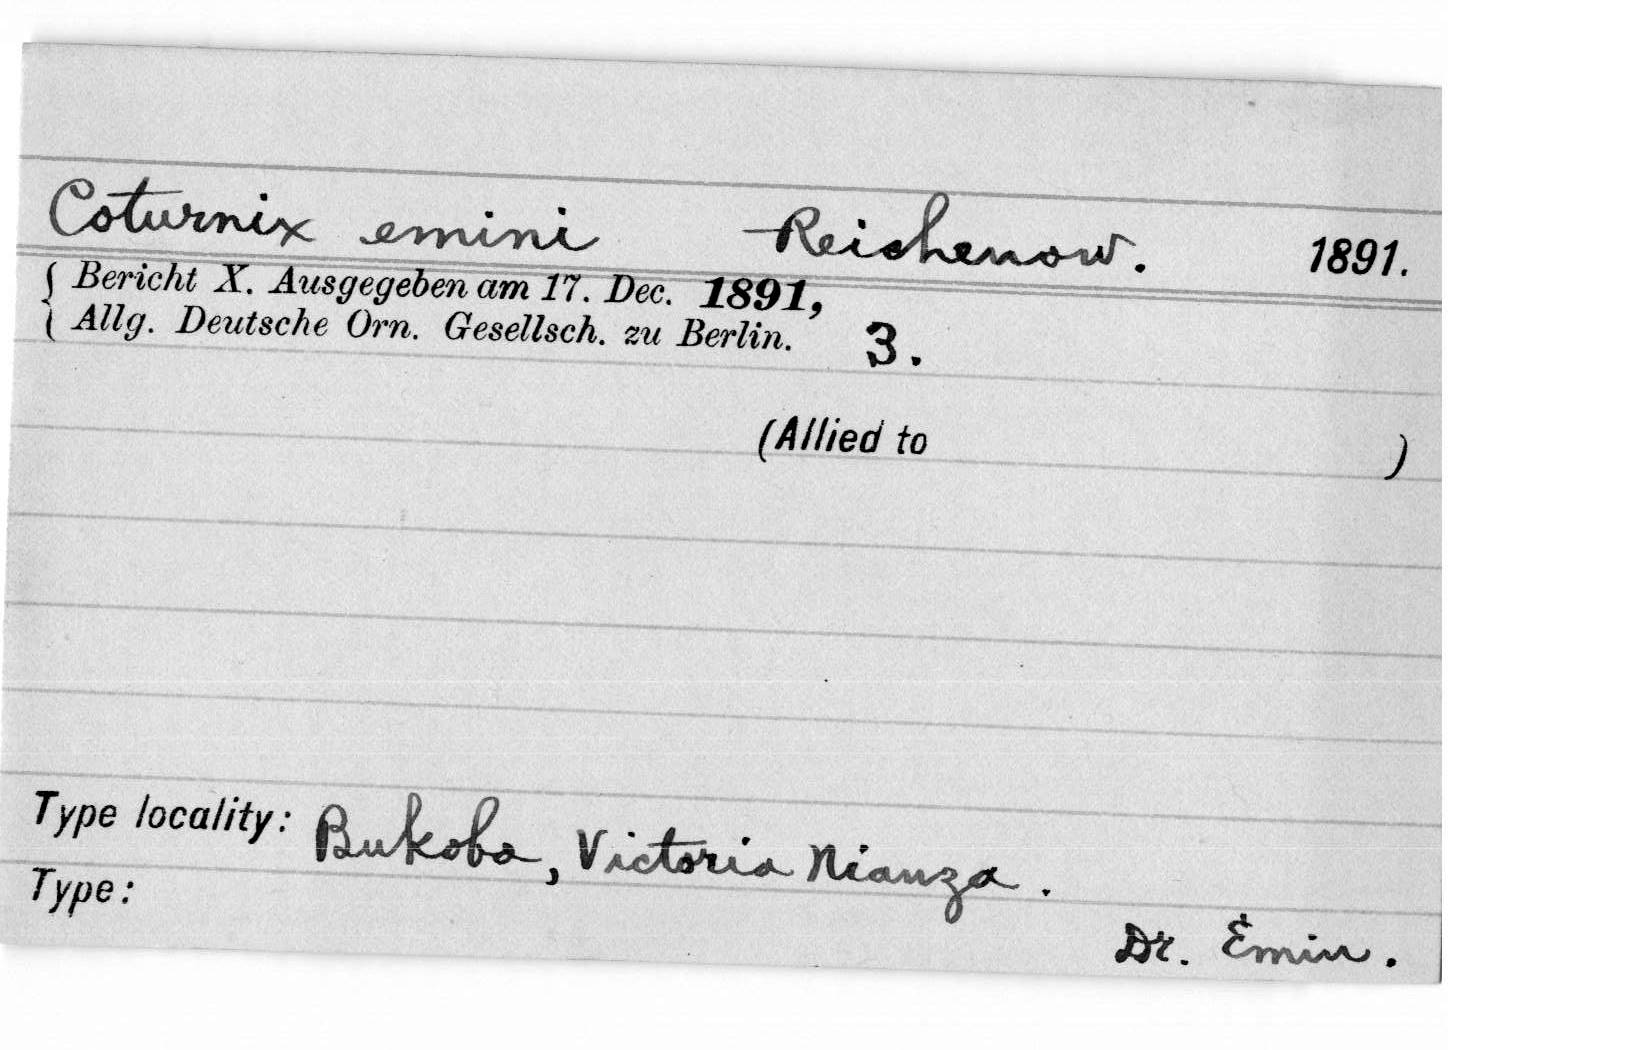 Coturnix emini Reichenow. 1891.
{ Bericht X. Ausgegeben am 17. Dec. 1891,
{ Allg. Deutsche Orn. Gesellsch. zu Berlin. 3.
(Allied to )
Type locality: Bukoba, Victoria Nianza.
Type:
Dr. Emin.